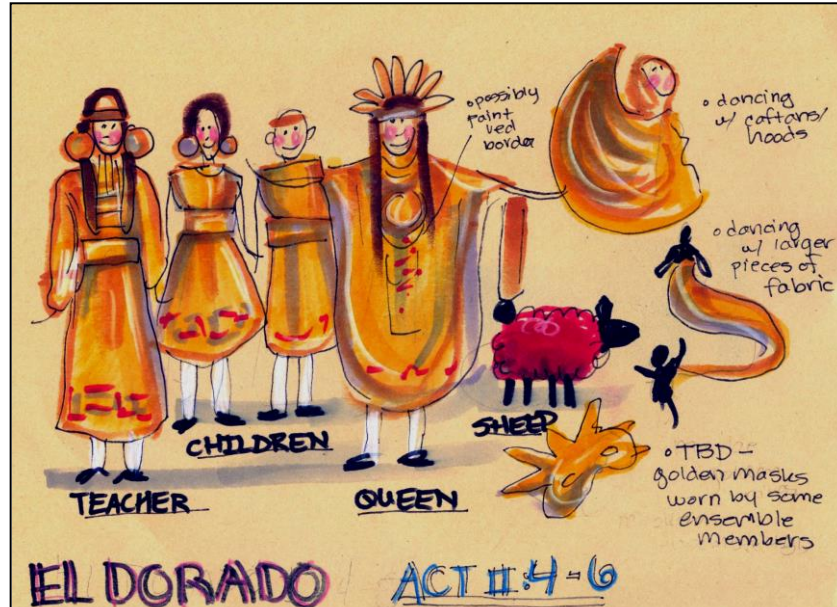 • possibly
paint
red
border
• dancing
w/ caftans/
hoods
• dancing
w/ larger
pieces of
fabric
CHILDREN
SHEEP
TEACHER
QUEEN
• TBD –
golden masks
worn by some
ensemble
members
EL DORADO ACT II:4-6